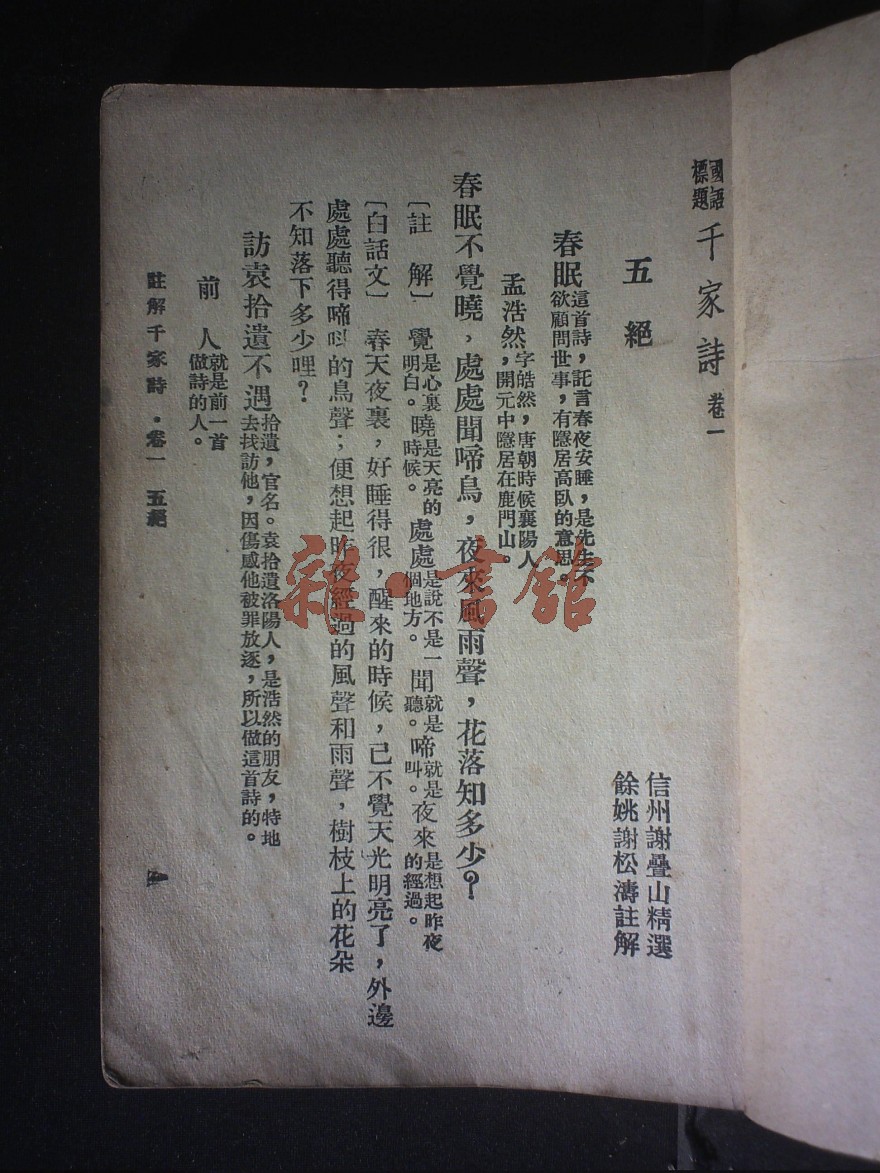 國語標題千家詩 卷一
五絕
信州謝疊山精選
餘姚謝松濤註解
春眠 這首詩,託言春夜安睡,是先生不欲顧問世事,有隱居高臥的意思。
孟浩然 字皓然,唐朝時候襄陽人,開元中隱居在鹿門山。
春眠不覺曉,處處聞啼鳥,夜來風雨聲,花落知多少?
〔註解〕 覺是心裏明白。曉是天亮的時候。處處是說不是一個地方。聞就是聽。啼就是叫。夜來是想起昨夜的經過。
〔白話文〕 春天夜裏,好睡得很,醒來的時候,已不覺天光明亮了,外邊
處處聽得啼叫的鳥聲;便想起昨夜經過的風聲和雨聲,樹枝上的花朵
不知落下多少哩?
訪袁拾遺不遇 拾遺,官名。袁拾遺洛陽人,是浩然的朋友,特地去找訪他,因傷感他被罪放逐,所以做這首詩的。
前人 就是前一首做詩的人。
註解千家詩・卷一 五絕
雜・書館